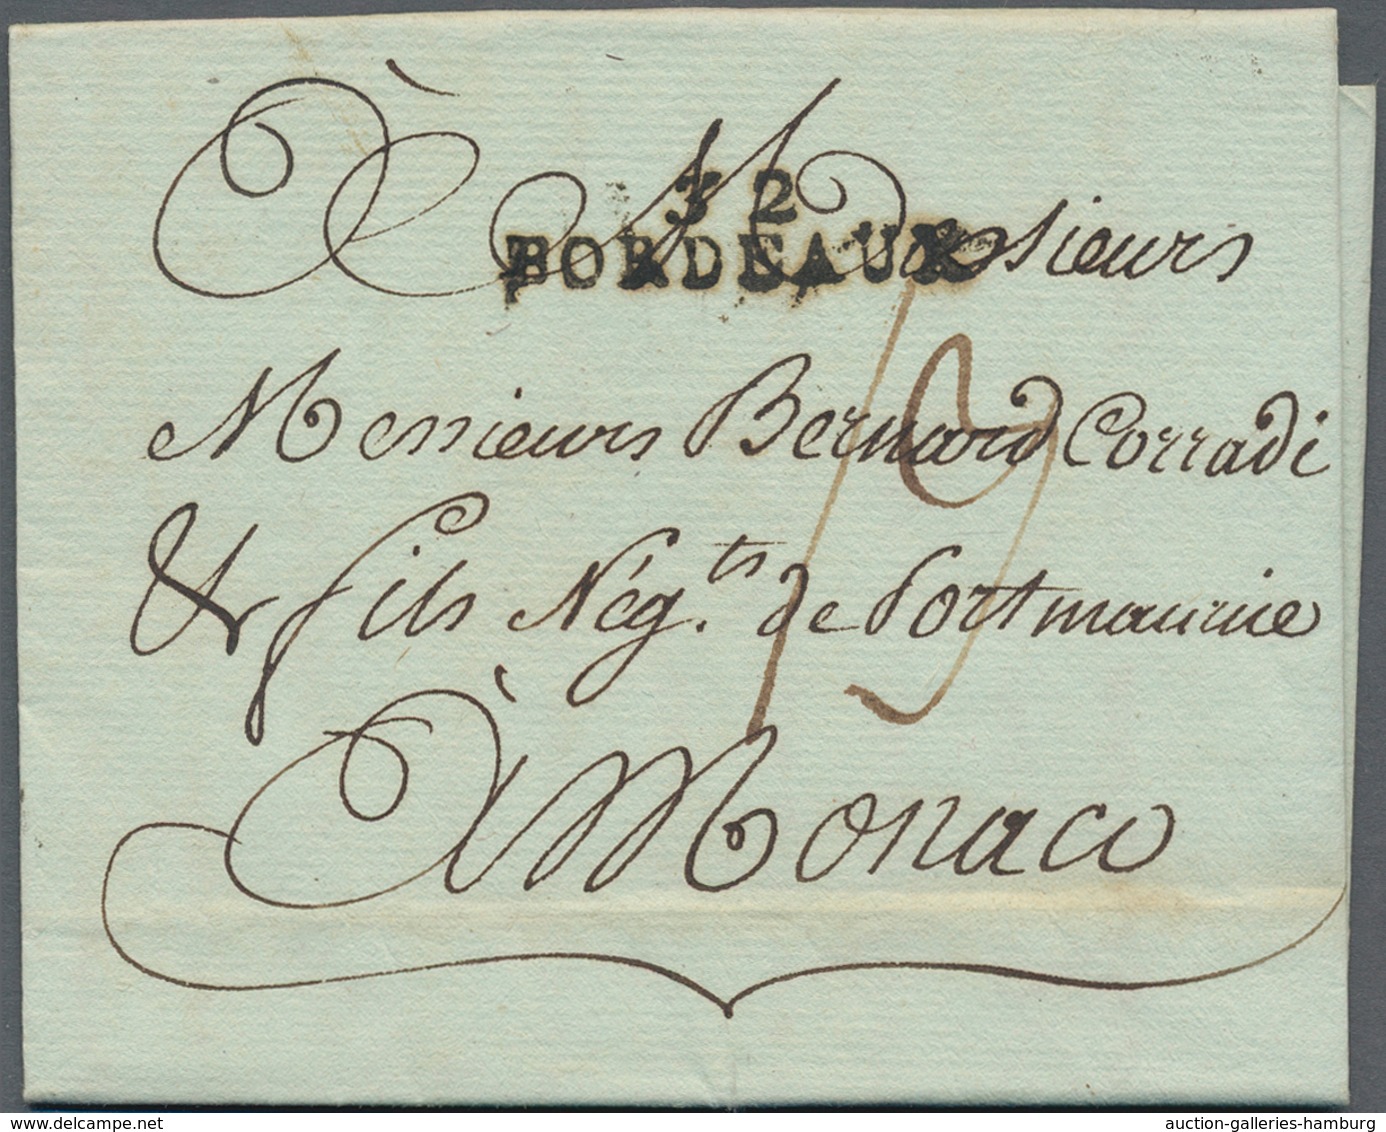 À Messieurs
32
BORDEAUX
Messieurs Bernard Corradi
& fils Nég.ts de Portmaurice
À Monaco
19
auction-galleries-hamburg